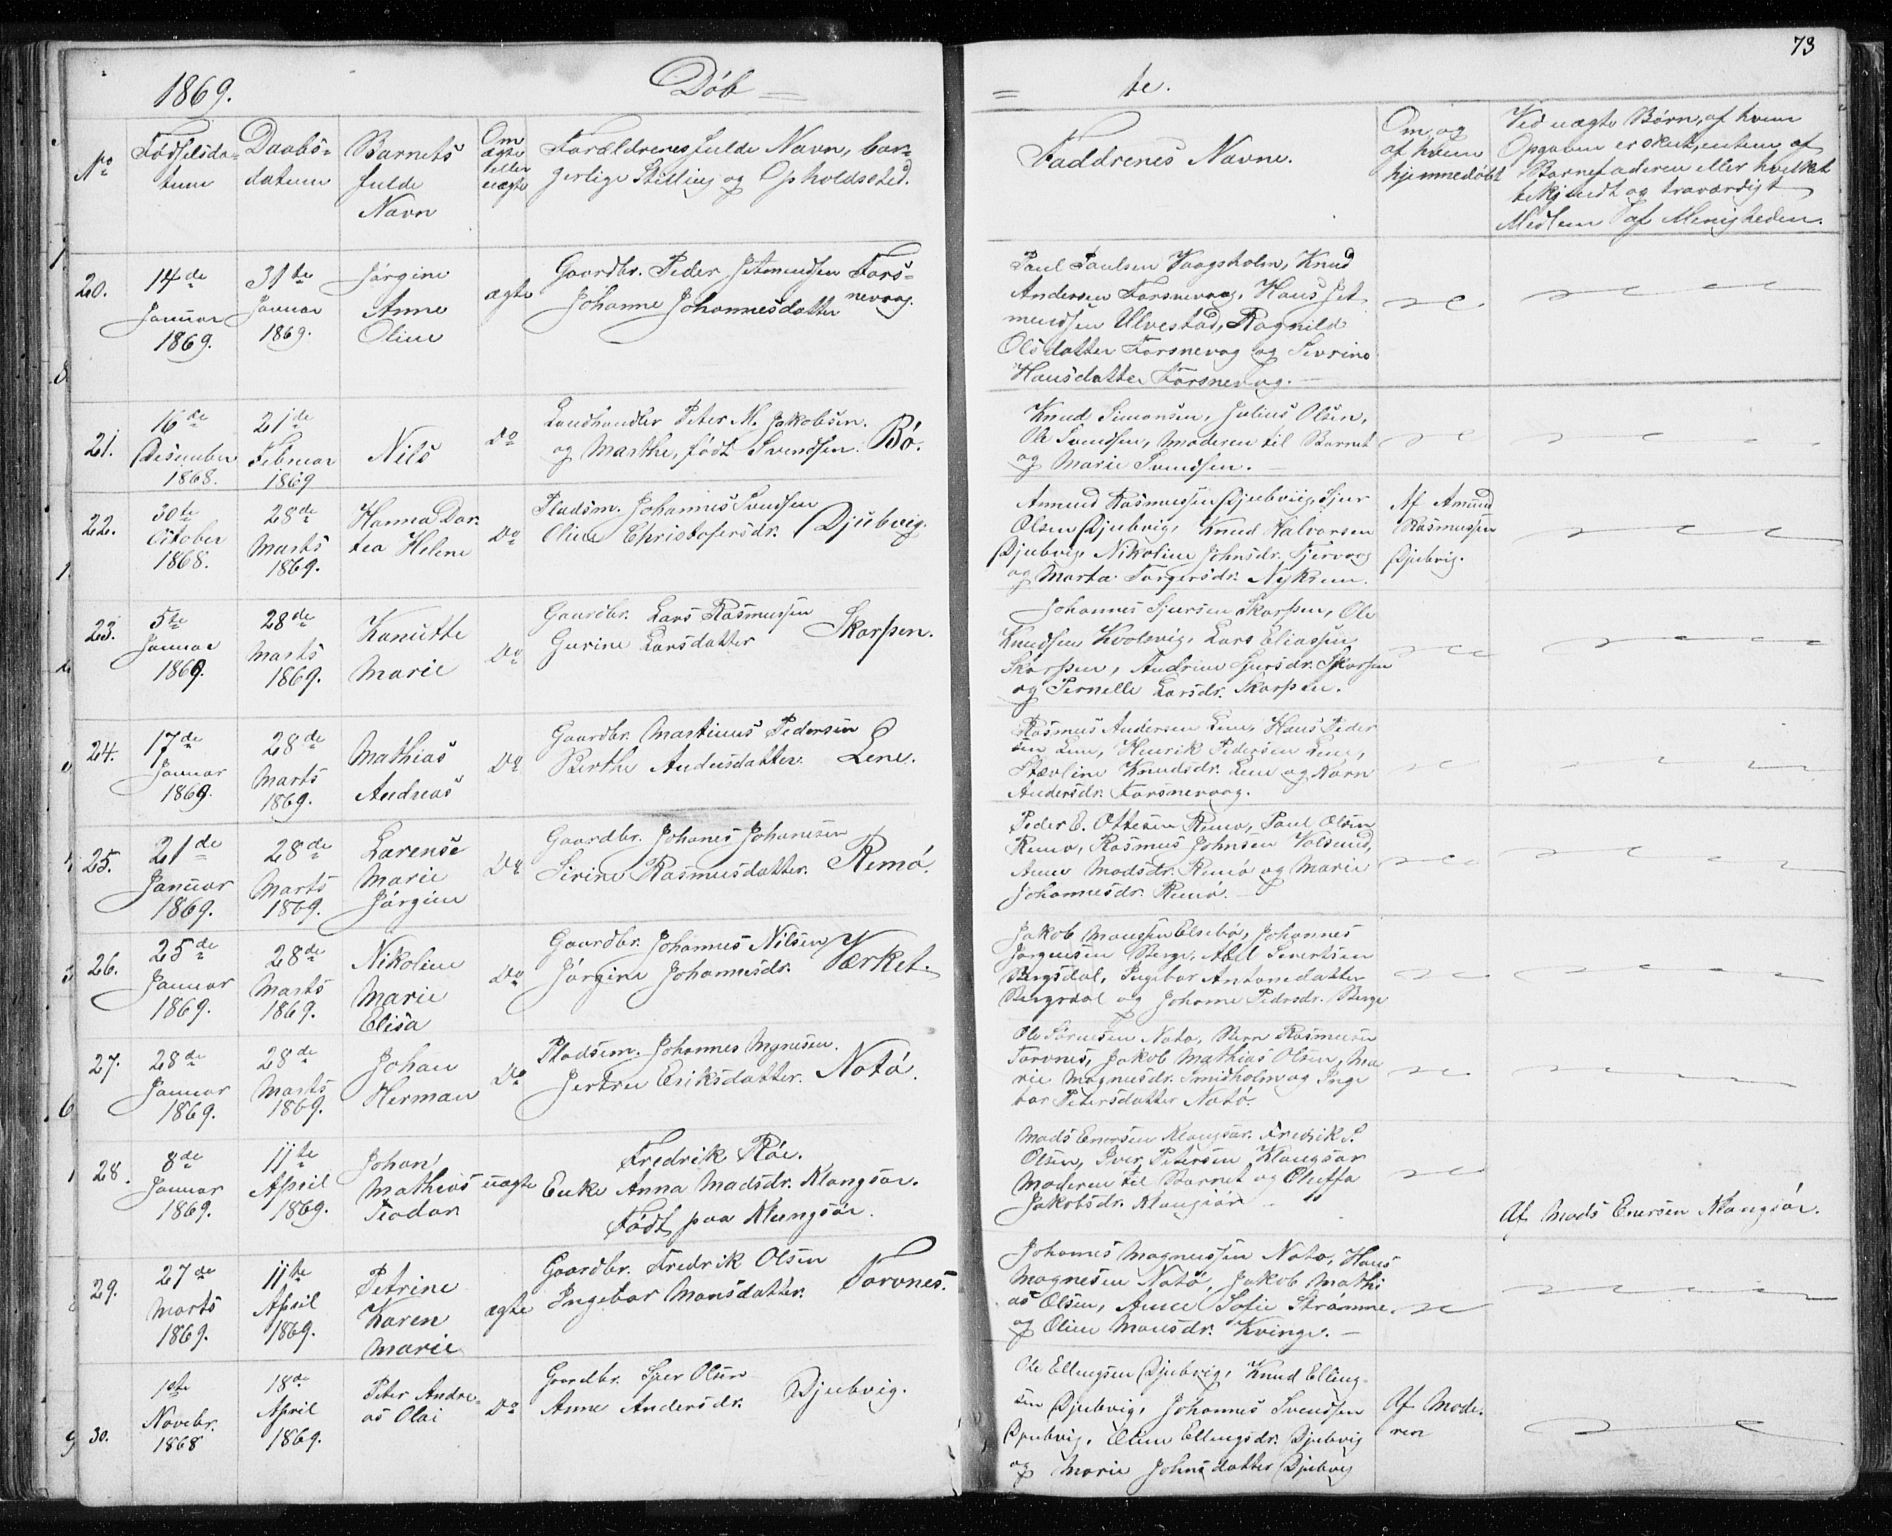 73
1869. Døb = = te.
No
Fødselsda-
tum
Daabs-
datum
Barnets
fulde
Navn
Om
ægte
eller
uægte
Forældrenes fulde Navn, bor-
gerlige Stilling og Opholdssted.
Faddrenes Navne.
Om og
af hvem
hjemmedøbt
Ved uægte Børn, af hvem
Opgaven er skeet, enten af
Barnefaderen eller hvilket
bekjendt og troværdigt
Medlem af Menigheden.
20.
14de
Januar
1869.
31te
Januar
1869.
Jørgine
Anne
Oline
ægte
Gaardbr. Peder Jetmundsen Fors-
Johanne Johannesdatter nevaag.
Paul Paulsen Vaagsholm, Knud
Andersen Forsnevaag, Hans Jet
mundsen Ulvestad, Ragnild
Olsdatter Forsnevag og Sevrine
Hansdatter Forsnevag.
21.
16de
Desember
1868.
21de
Februar
1869
Nils
Do
Landhandler Peter M. Jakobsen.
og Marthe, født Svendsen. Bø.
Knud Simonsen, Julius Olsen,
Ole Svendsen, Moderen til Barnet
og Marie Svendsen.
22.
30te
October
1868.
28de
Marts
1869.
Hanna Dor
tea Helene
Do
Pladsm. Johannes Svendsen
Oline Christofersdr. Djubvig.
Amund Rasmussen Djubviig, Sjur
Olsen Djubvig, Knud Halvorsen
Djubvig, Nikoline Johnsdr. Tjervaag
og Marta Torgersdr. Nyksun.
Af Amund
Rasmussen
Djubvig.
23.
5te
Januar
1869.
28de
Marts
1869.
Kanutte
Marie
Do
Gaardbr. Lars Rasmussen
Gurine Larsdatter Skorpen.
Johannes Sjursen Skorpen, Ole
Knudsen Kvolsvig, Lars Eliassen
Skorpen, Andrine Sjursdr. Skorpen
og Pernelle Larsdr. Skorpen.
24.
17de
Januar
1869.
28de
Marts
1869.
Mathias
Andreas
Do
Gaardbr. Martinus Pedersen
Berthe Andersdatter. Lene.
Rasmus Andersen Lene, Hans Peder
sen Lene, Henrik Pedersen Lene,
Stævline Knudsdr. Lene og Karn
Andersdr. Forsnevaag.
25.
21de
Januar
1869.
28de
Marts
1869.
Larense
Marie
Jørgine
Do
Gaardbr. Johanes Johanesen
Sirine Rasmusdatter. Remø.
Peder E. Ottesen Remø, Paul Olsen
Remø, Rasmus Johnsen Volsund,
Anne Madsdr. Remø og Marie
Johannesdr. Remø.
26.
25de
Januar
1869.
28de
Marts
1869.
Nikoline
Marie
Elisa
Do
Gaardbr. Johannes Nilsen
Jørgine Johannesdr. Værket.
Jakob Monssen Elsebø, Johannes
Jørgensen Berge, Abel Severtsen
Bergsdal, Ingebor Antonsdatter
Bergsdal og Johanne Pedrsdr. Berge
27.
28de
Januar
1869.
28de
Marts
1869.
Johan
Herman
Do
Pladsm. Johannes Mgnesen.
Jertru Eriksdatter. Notø.
Ole Notø, Rasmusen
Torvnes, Jakob Mathias Olsen, Ma
rie Magnesdr. Smidholm og Inge
bor Petersdatter Notø.
28.
8de
Januar
1869.
11te
April
1869.
Johan
Mathias
Teodor
uægte
Fredrik Røe.
Enke Anna Madsdr. Klongsør.
Født paa Klungsør.
Mads Enersen Klongsør. Fredrik P.
Olsen, Iver Petersen Klongsør
Moderen til Barnet og Oluffa
Jakobsdr. Klongsør
Af Mads Enersen Klongsør.
29.
27de
Marts
1869.
11te
April
1869.
Petrine
Karen
Marie
ægte
Gaardbr. Fredrik Olsen
Ingebor Monsdatter. Torvnes.
Johannes Magnussen Notø, Hans
Magnesen Notø, Jakob Mathi
as Olsen, Anne Sofie Strømme
og Oline Monsdr. Kvinge.
30.
10te
Novebr.
1868
18de
April
1869.
Peter Andre
as Olai
Do
Gaardbr. Sjur Olsen
Anne Andersdr. Djubvig.
Ole Ellingsen Djubvig, Knud Elling
sen Djubvig, Johannes Svendsen
Djubvig, Oline Ellingsdr. Djubvig
og Marie Johnsdatter Djubvig
Af Mode.
ren